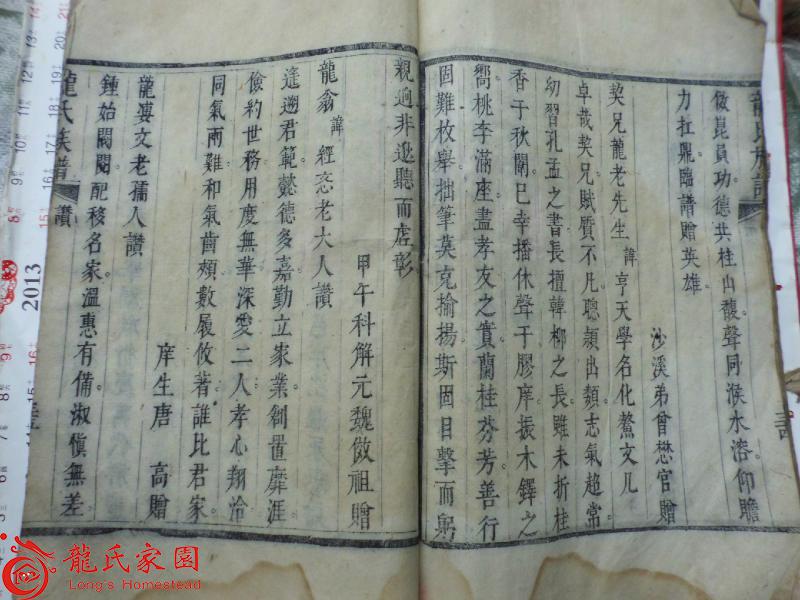 龍氏族譜
倣昆員功德共桂山馥聲同猴水溶仰瞻
力扛鼎臨譜贈英雄
沙溪弟曾懋官贈
契兄龍老先生諱亨天學名化鰲文几
卓哉契兄賦質不凡聰頴出類志氣超常
幼習孔孟之書長擅韓柳之長雖未折桂
香于秋闈巳幸播休聲于膠庠振木鐸之
嚮桃李滿座盡孝友之實蘭桂芬芳善行
固難枚舉拙筆莫克揄揚斯固目擊而躬
親逈非逖聽而虛彰
甲午科解元魏倣祖贈
龍翁諱經忞老大人讚
逢遡君範懿德多嘉勤立家業創置靡涯
儉約世務用度無華深愛二人孝心翔洽
同氣兩難和氣齒頰數履攸著誰比君家
庠生唐高贈
龍渡文老孺人讚
鍾始閥閱配移名家溫惠有備淑慎無差
龍氏族譜
讚
2013
龍氏家園
Long's Homestead